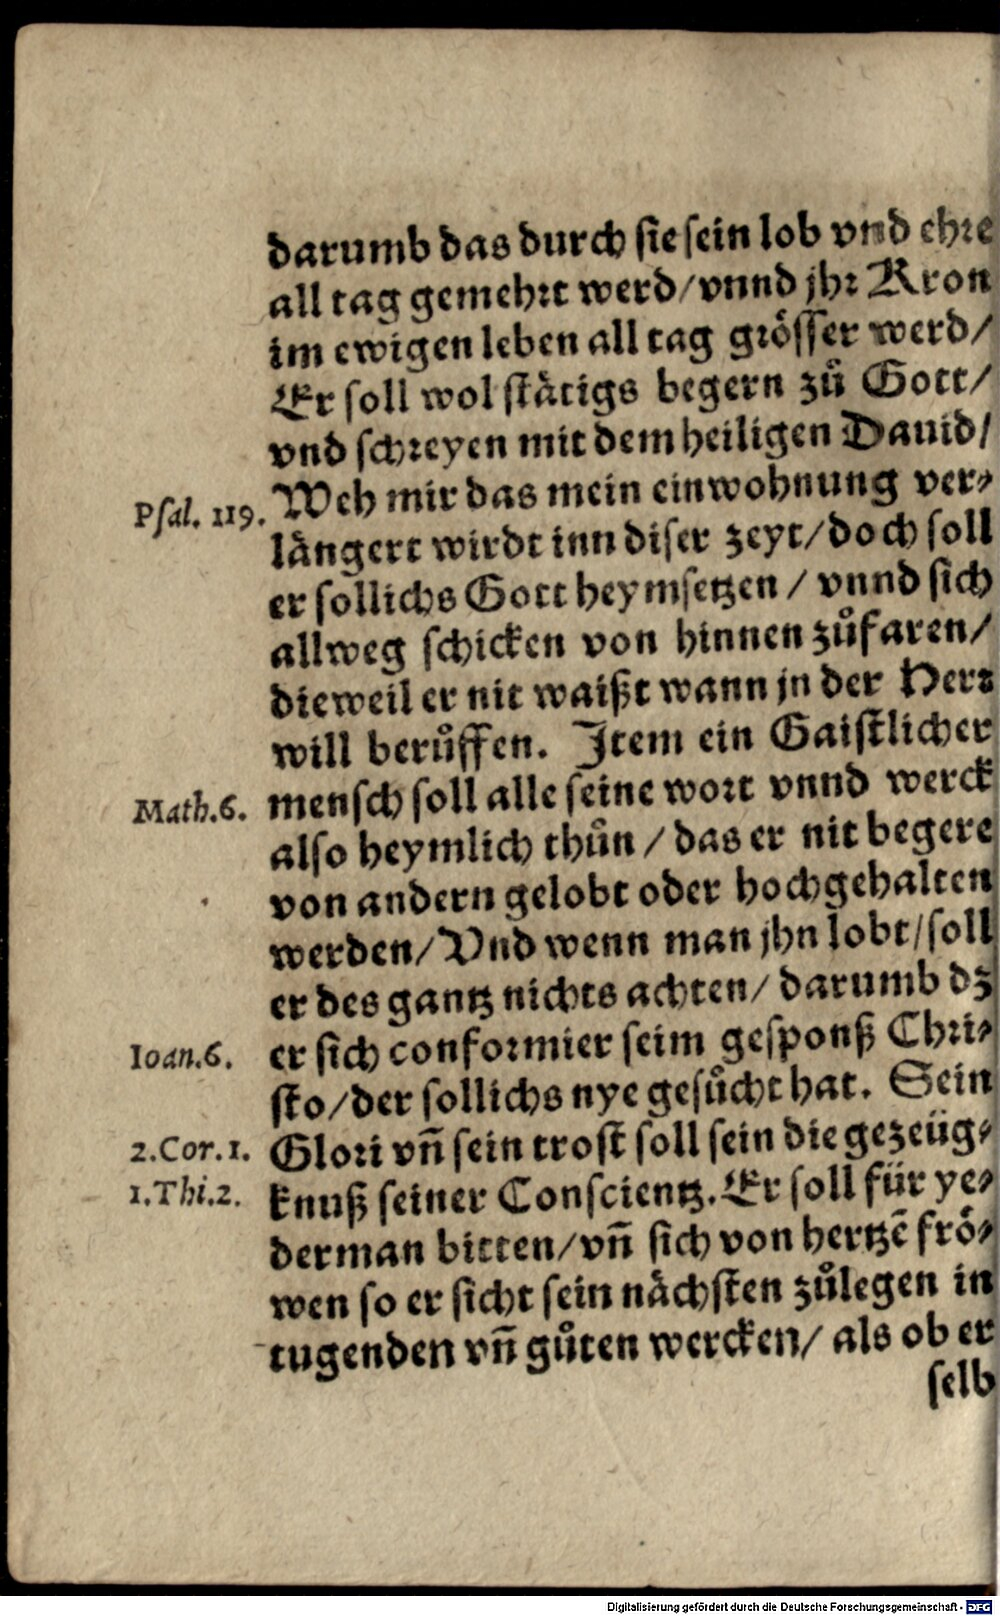 darumb das durch sie sein lob vnd ehre
all tag gemehrt werd/vnnd jhr Kron
im ewigen leben all tag grösser werd/
Er soll wol stätigs begern zů Gott/
vnd schreyen mit dem heiligen Dauid/
Psal. 119. Weh mir das mein einwohnung ver-
längert wirdt inn diser zeyt/doch soll
er sollichs Gott heymsetzen / vnnd sich
allweg schicken von hinnen zůfaren/
dieweil er nit waißt wann jn der Herr
will berůffen. Item ein Gaistlicher
Math.6. mensch soll alle seine wort vnnd werck
also heymlich thůn / das er nit begere
von andern gelobt oder hochgehalten
werden/Vnd wenn man jhn lobt/soll
er des gantz nichts achten/ darumb dz
Ioan.6. er sich conformier seim gesponß Chri-
sto/der sollichs nye gesůcht hat. Sein
2.Cor.1. Glori vñ sein trost soll sein die gezeüg-
1.Thi.2. knuß seiner Conscientz. Er soll für ye-
derman bitten/vñ sich von hertzē frö-
wen so er sicht sein nächsten zůlegen in
tugenden vñ gůten wercken/ als ob er
selb
Digitalisierung gefördert durch die Deutsche Forschungsgemeinschaft - DFG